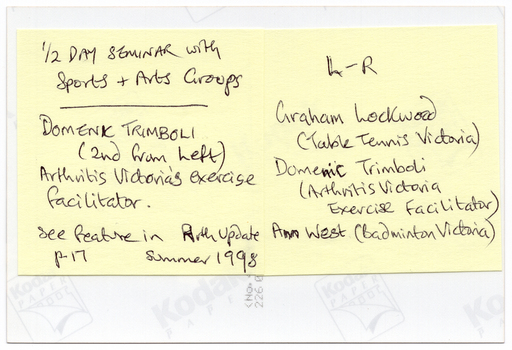 1/2 DAY SEMINAR with
Sports + Arts Groups
DOMENIC TRIMBOLI
(2nd from Left)
Arthritis Victoria's exercise
facilitator.
See feature in Arth Update
p-17 Summer 1998
L-R
Graham Lockwood
(Table Tennis Victoria)
Domenic Trimboli
(Arthritis Victoria
Exercise Facilitator)
Ann West (Badminton Victoria)
Kodak
PAPER
Kodak
PAPIER
Kodak